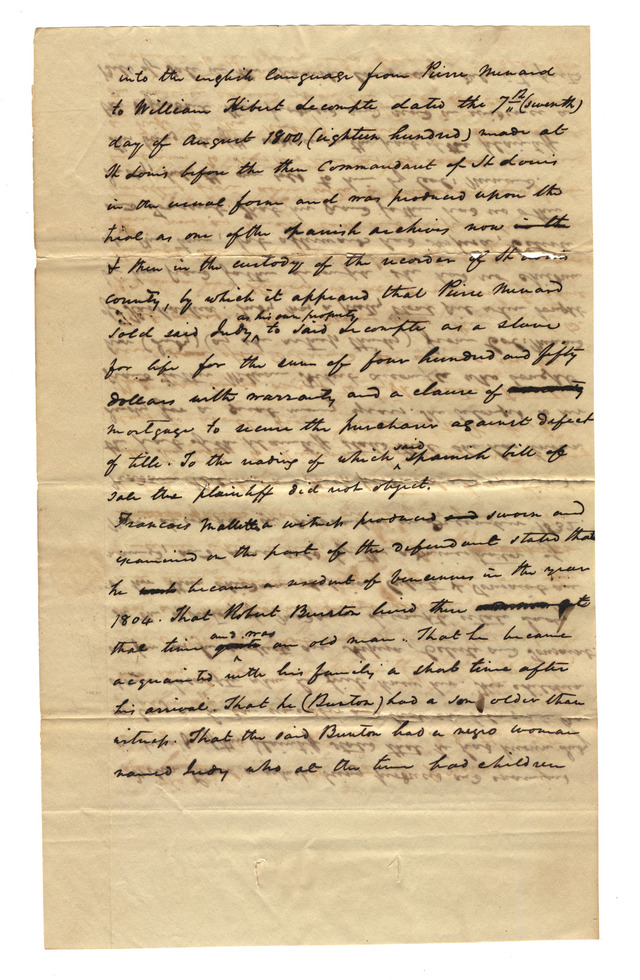 into the english language from Pierre Menard
to William Hibert Lecompte dated the 7th (seventh)
day of August 1800, (eighteen hundred) made at
St Louis before the then Commandant of St Louis
in the usual form and was produced upon the
trial as one of the Spanish archives now in the
& then in the custody of the recorder of St Louis
county, by which it appeared that Pierre Menard
sold said Judy as his own property to said Lecompte as a slave
for life for the sum of four hundred and fifty
dollars with warranty and a clause of
mortgage to secure the purchaser against defect
of title. To the reading of which said Spanish bill of
sale the plaintiff did not object.
Francois Mallette a witness produced and sworn and
examined on the part of the defendant stated that
he became a resident of Vincennes in the year
1804. That Robert Bunton lived there at
that time and was an old man. That he became
acquainted with his family a short time after
his arrival. That he (Bunton) had a son older than
witness. That the said Bunton had a negro woman
named Judy who at the time had children